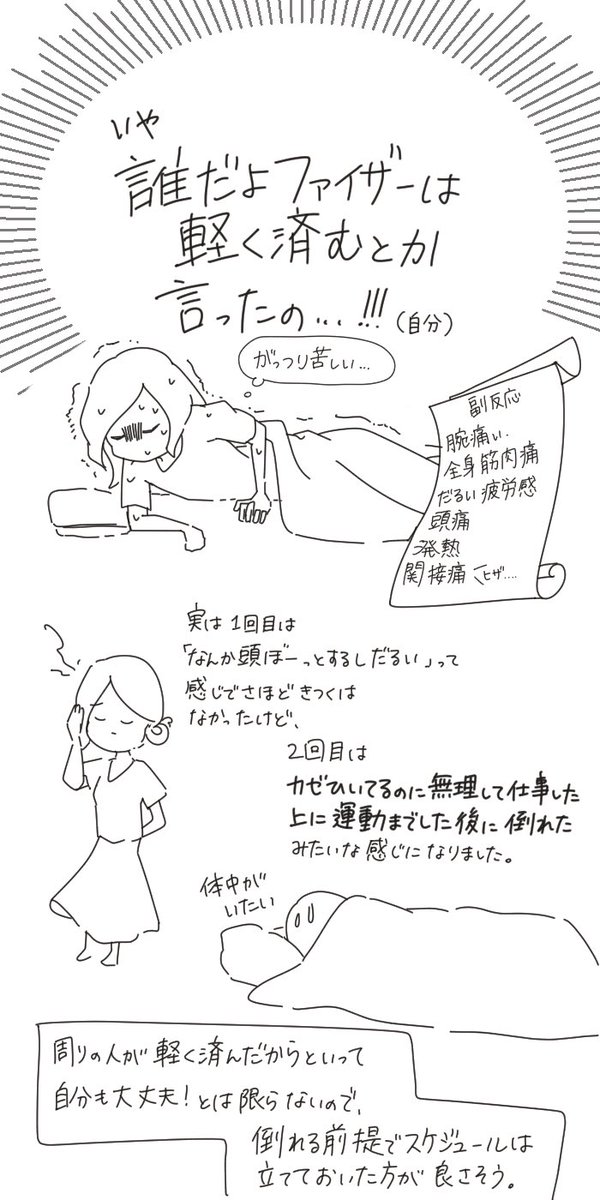 いや
誰だよファイザーは
軽く済むとか
言ったの...!!!(自分)
がっつり苦しい...
副反応
腕痛い
全身筋肉痛
だるい疲労感
頭痛
発熱
関接痛くヒザ....
実は1回目は
「なんか頭ぼーっとするしだるい」って
感じでさほどきつくは
なかったけど、
2回目は
カゼひいてるのに無理して仕事した
上に運動までした後に倒れた
みたいな感じになりました。
体中が
いたい
周りの人が軽く済んだからといって
自分も大丈夫!とは限らないので、
倒れる前提でスケジュールは
立てておいた方が良さそう。